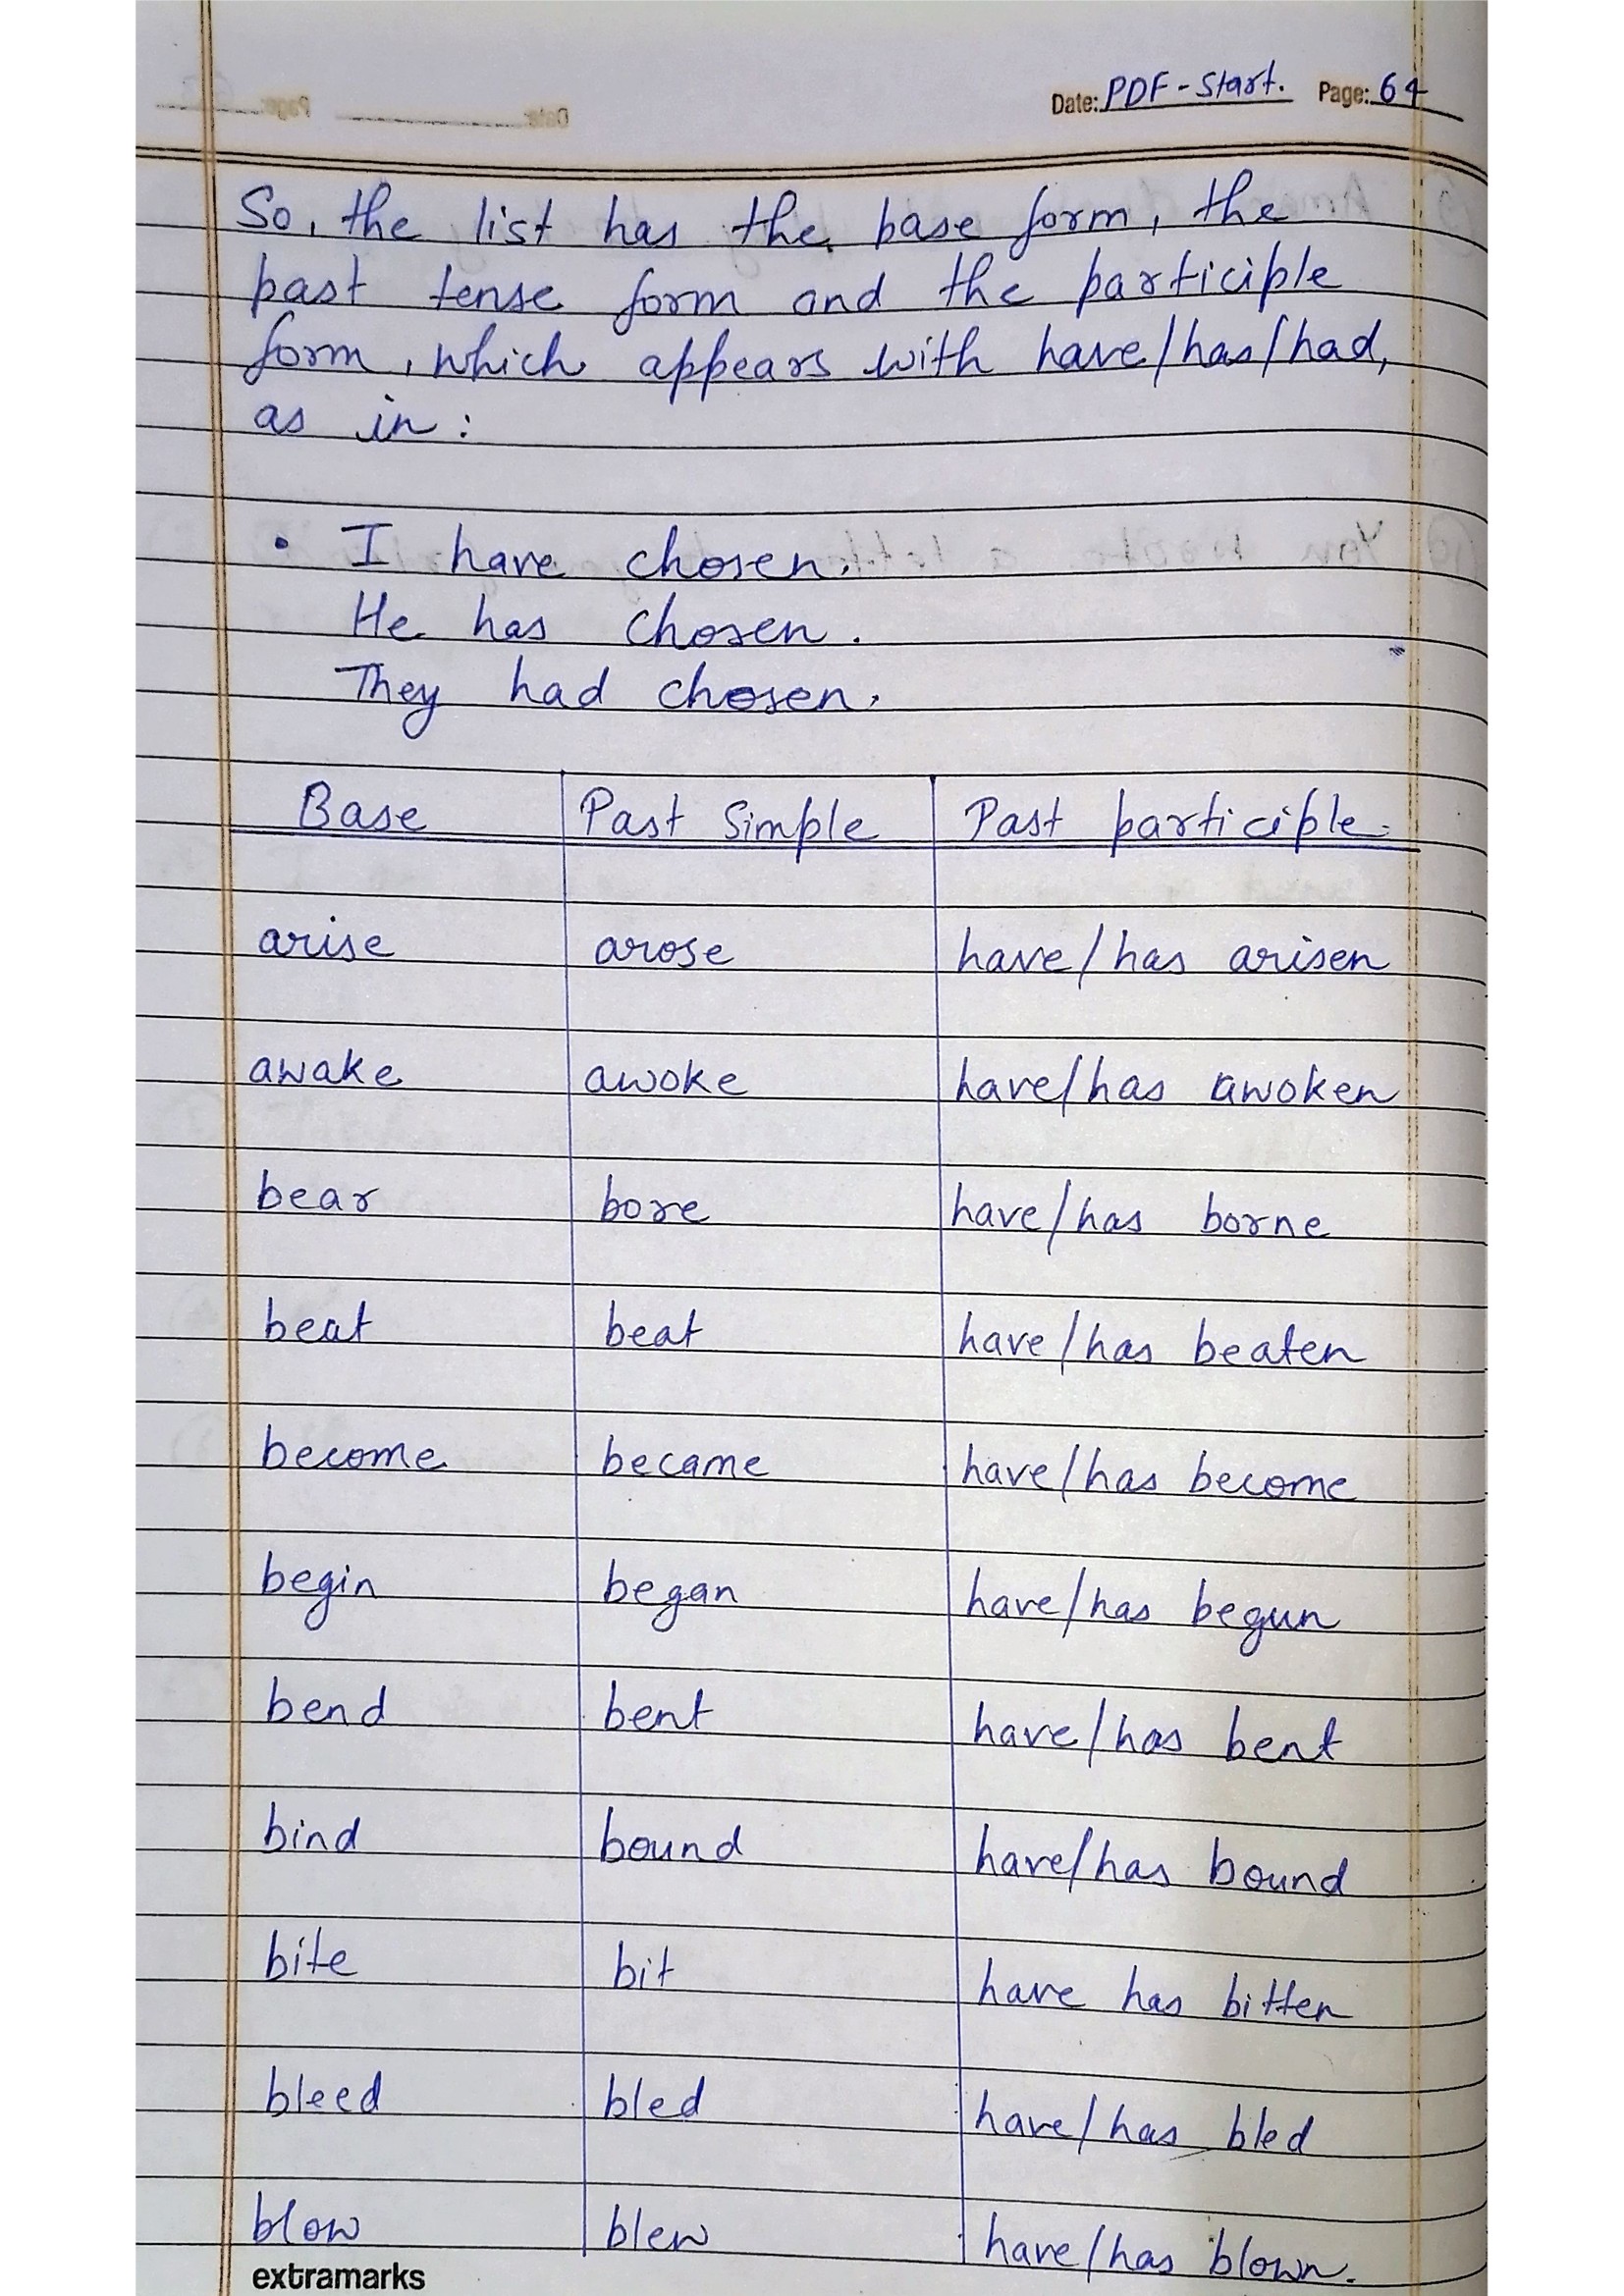 Date: PDF - Start. Page: 64
So, the list has the base form, the
past tense form and the participle
form, which appears with have/has/had,
as in:
• I have chosen.
He has chosen.
They had chosen.
Base Past Simple Past participle.
arise arose have/has arisen
awake awoke have/has awoken
bear bore have/has borne
beat beat have/has beaten
become became have/has become
begin began have/has begun
bend bent have/has bent
bind bound have/has bound
bite bit have has bitten
bleed bled have/has bled
blow blew have/has blown.
extramarks